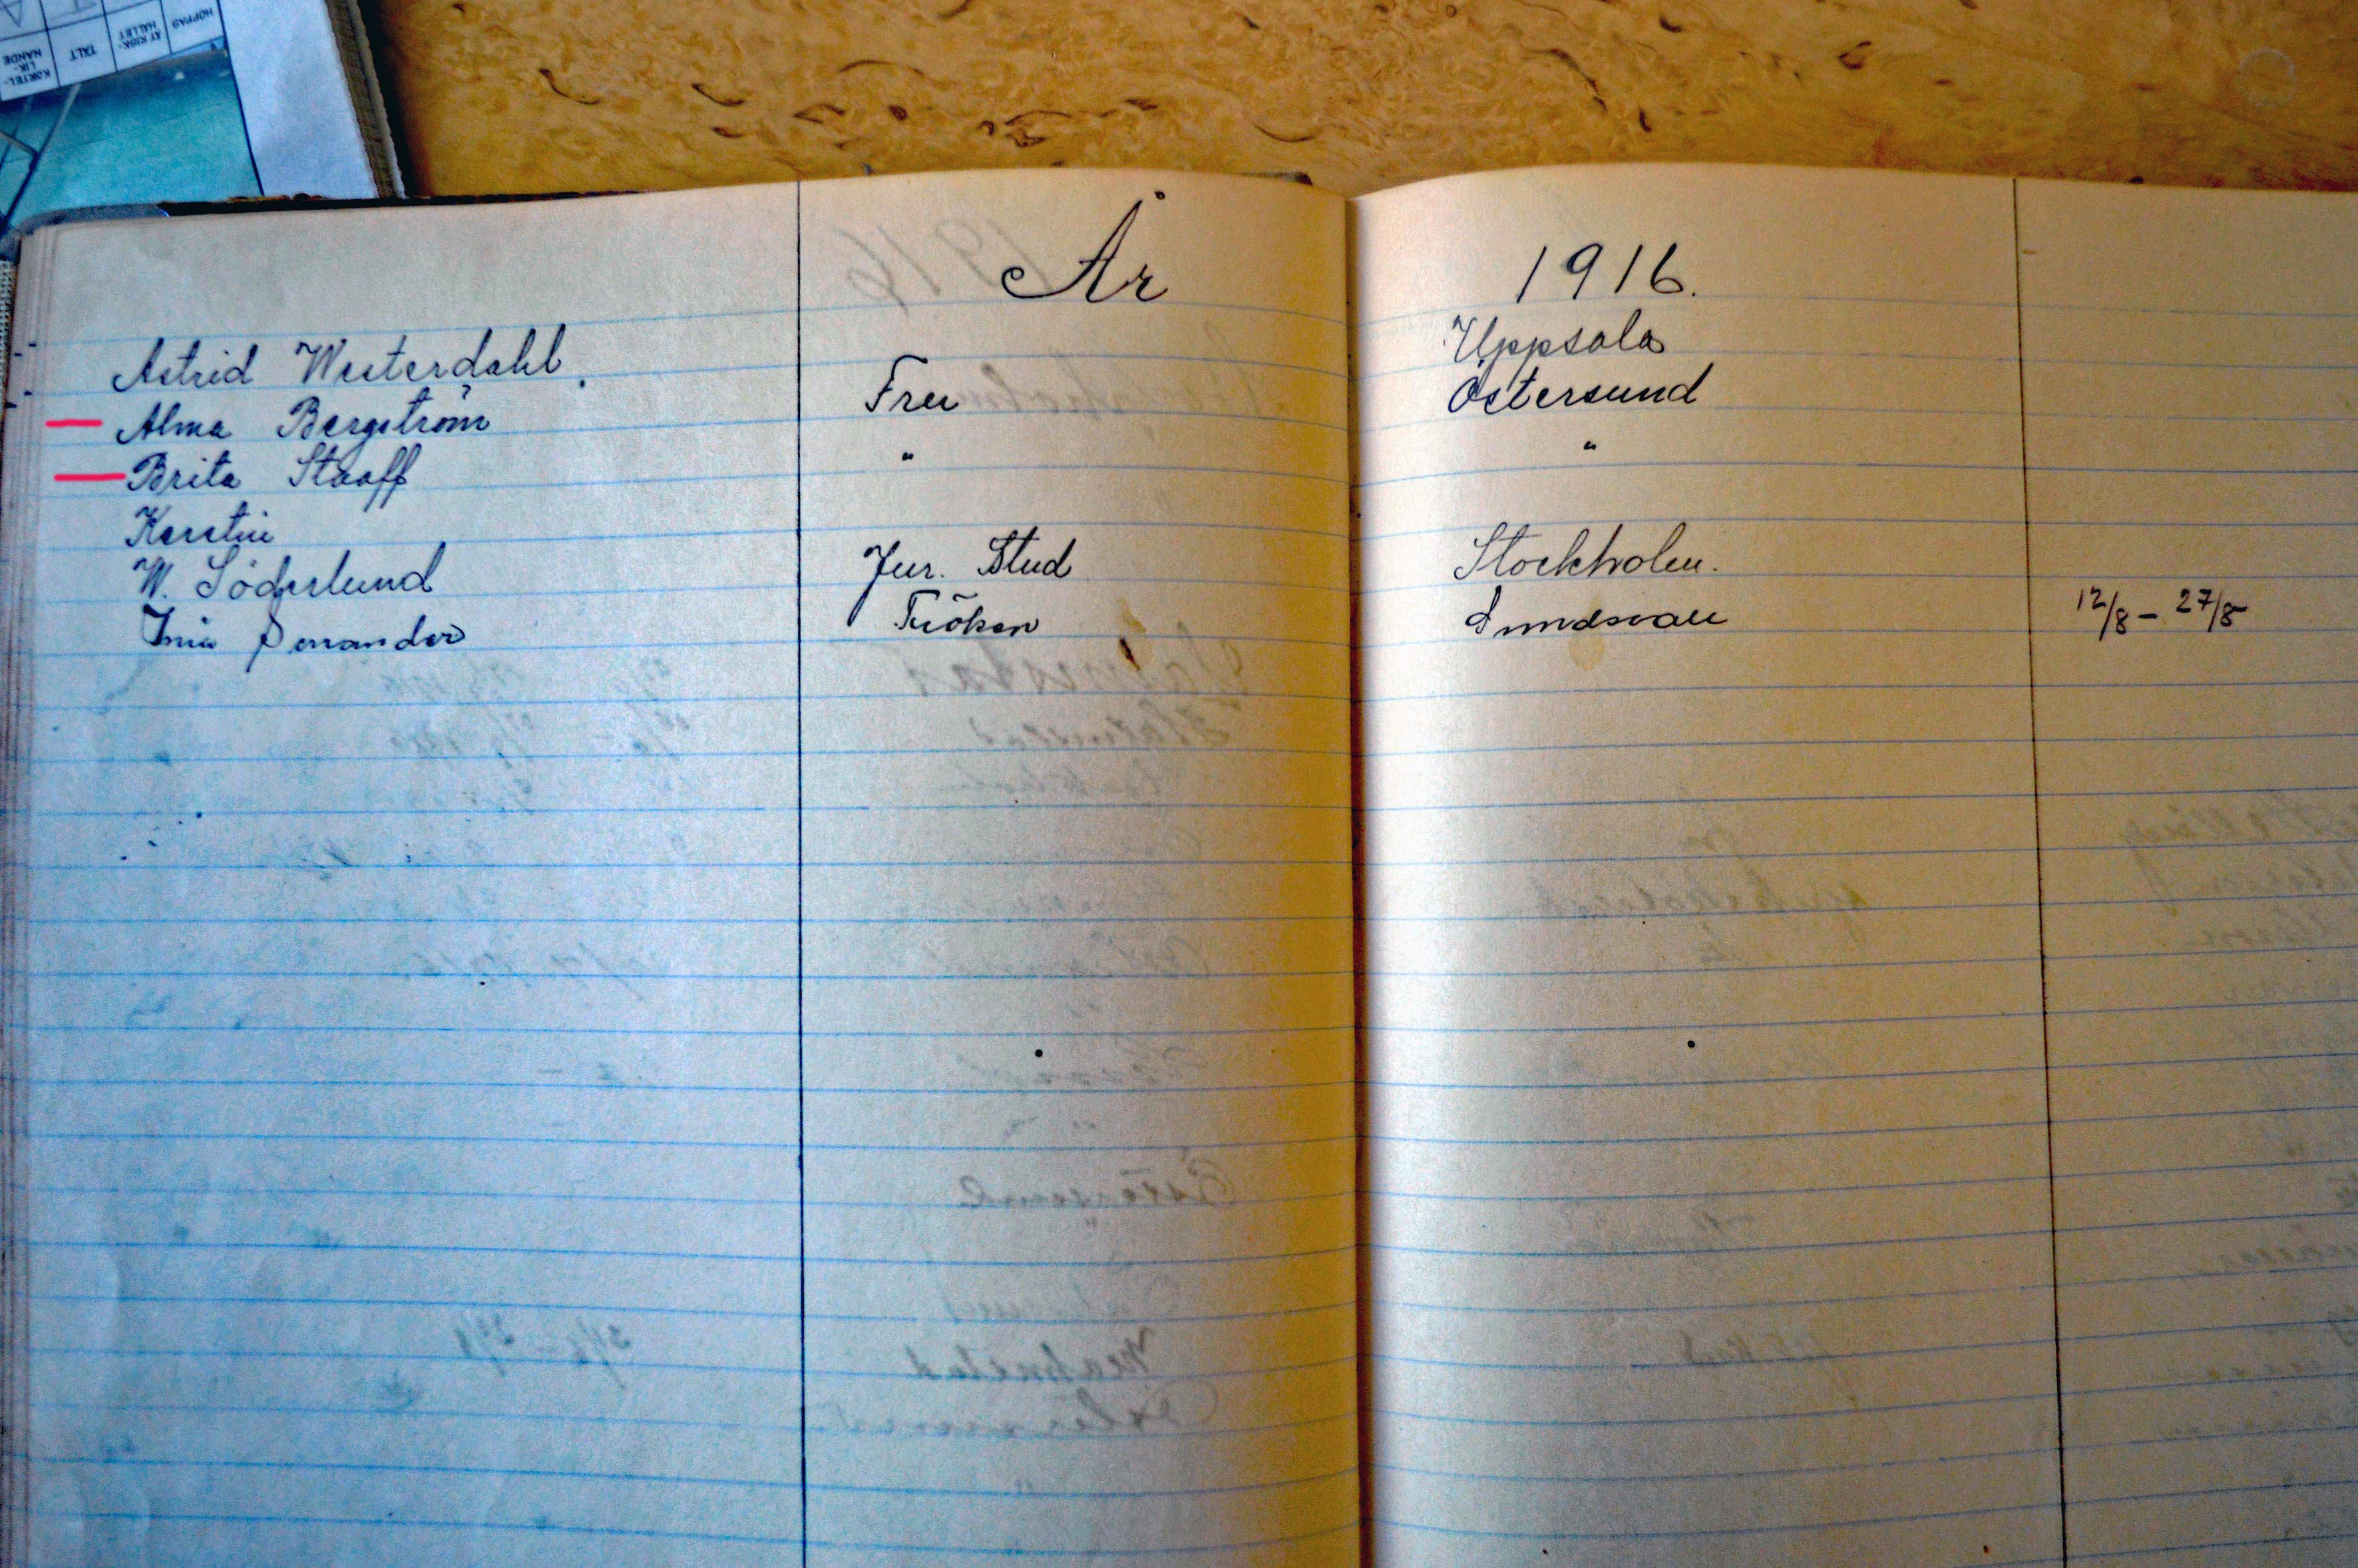 HOPPAS
ÅT KISK-
HÅLLET
TÄLT
KORTEL-
LIK-
NANDE
År 1916.
Astrid Westerdahl. Uppsala
Alma Bergström Fru Östersund
Brita Staaff " "
Kerstin
W. Söderlund Jur. Stud Stockholm.
Fröken Sundsvall 12/8 - 27/8